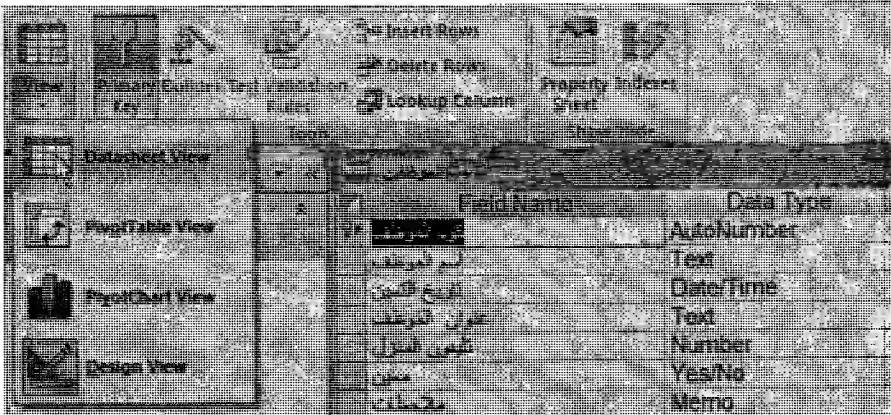 View
Primary Key
Builder
Test Validation Rules
Insert Rows
Delete Rows
Lookup Column
Property Sheet
Indexes
Tools
Show/Hide
Datasheet View
PivotTable View
PivotChart View
Design View
Field Name Data Type
AutoNumber
اسم الموظف Text
Date/Time
عنوان الموظف Text
تليفون المنزل Number
Yes/No
ملاحظات Memo